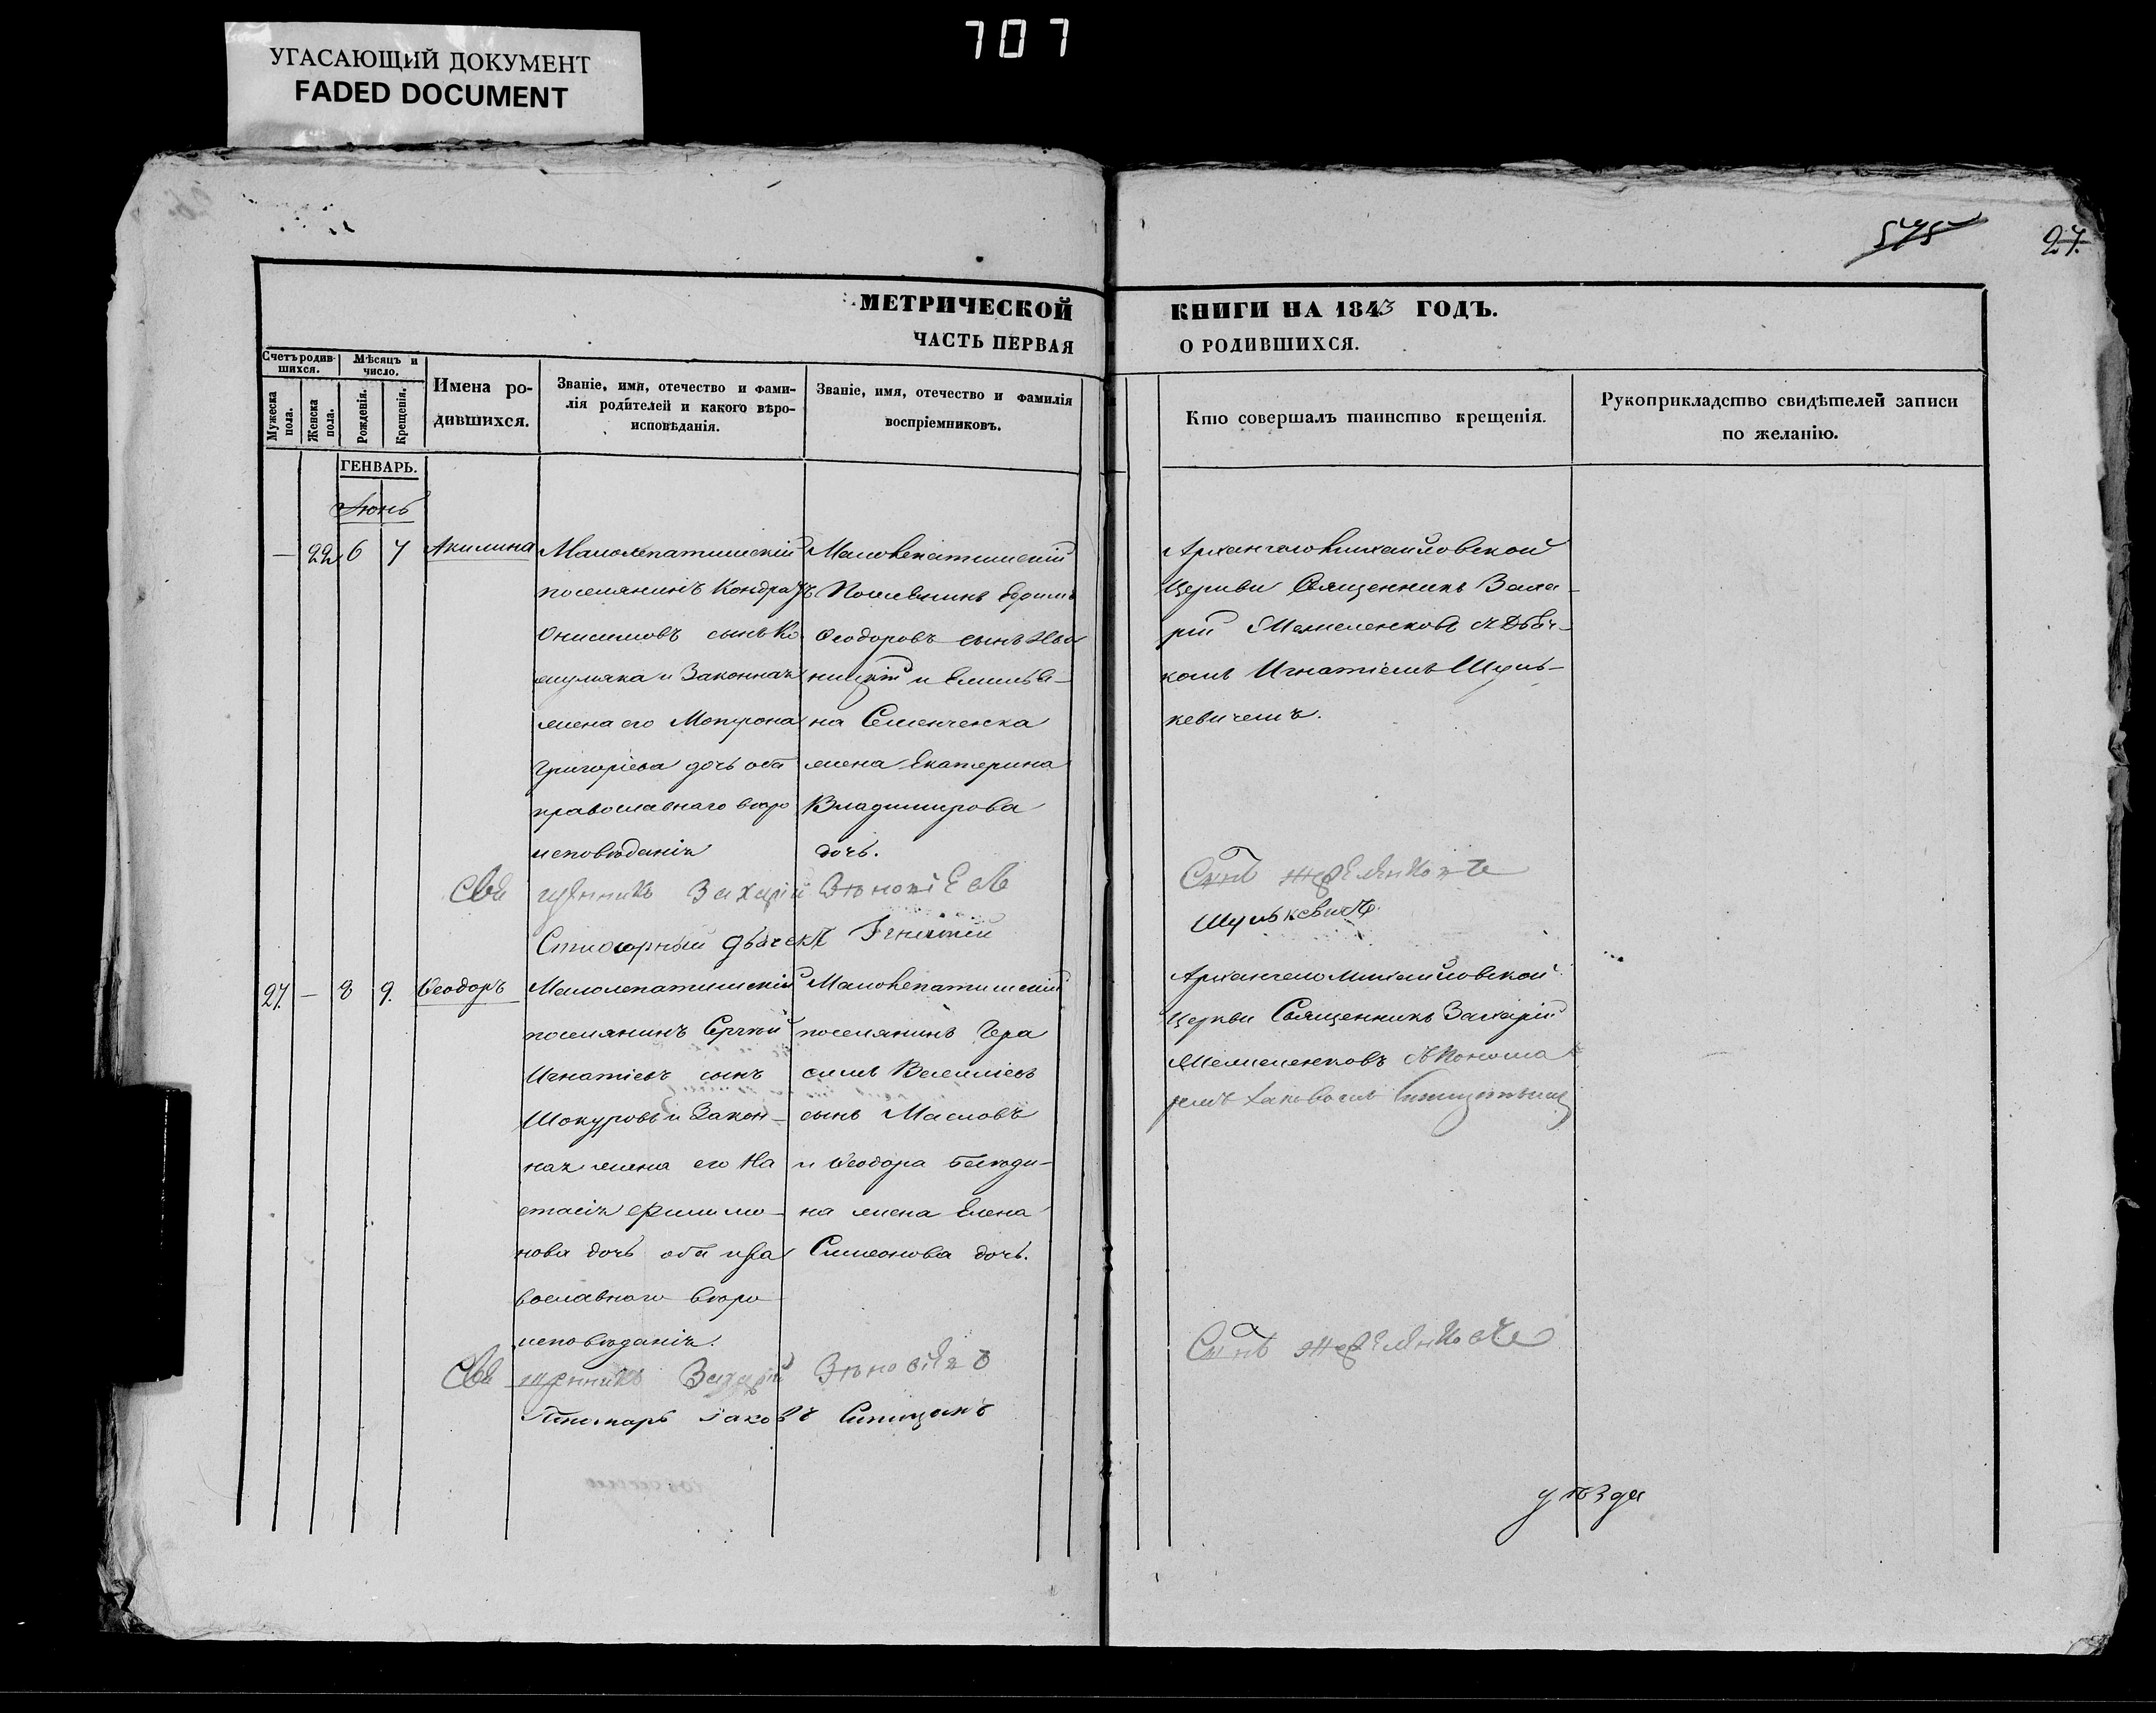 707
УГАСАЮЩИЙ ДОКУМЕНТ
FADED DOCUMENT
575
27.
МЕТРИЧЕСКОЙ КНИГИ НА 1843 ГОДЪ.
ЧАСТЬ ПЕРВАЯ О РОДИВШИХСЯ.
Счетъ родив-
шихся.
Мужеска пола.
Женска пола.
Мѣсяцъ и
число.
Рожденія.
Крещенія.
Имена ро-
дившихся.
Званіе, имя, отечество и фами-
лія родителей и какого вѣро-
исповѣданія.
Званіе, имя, отечество и фамилія
воспріемниковъ.
Кто совершалъ таинство крещенія.
Рукоприкладство свидѣтелей записи
по желанію.
ГЕНВАРЬ.
Іюнь
— 22 6 7 Акилина
Малолепатишскій
поселянинъ Кондратъ
Онисимовъ сынъ Ко
и Законная
жена его Мотрона
Григоріева дочь оба
православнаго вѣро
исповѣданія
Малолепатишскій
Ѳеодоровъ сынъ
и
на Семенченка
жена Екатерина
Владимирова
дочь.
Архангеломихайловской
Церкви Священникъ Заха-
рій съ Дьяч-
комъ Игнатіемъ Шуль-
кевичемъ.
Священникъ Захарій
дьячекъ Игнатій
Шулькевичъ.
27. — 8 9. Ѳеодоръ
Малолепатишскій
поселянинъ Сергій
Игнатіевъ сынъ
Шокуровъ и Закон-
ная жена его На
стасія Филимо-
нова дочь оба пра
вославнаго вѣро
исповѣданія.
Малолепатишскій
поселянинъ Гера
симъ Василіевъ
сынъ Масловъ
и Ѳеодора
на жена Елена
Симеонова дочь.
Архангеломихайловской
Церкви Священникъ Захарій
съ Понома
ремъ Іаковомъ
Священникъ Захарій
Пономарь Іаковъ Синицынъ
уѣзда